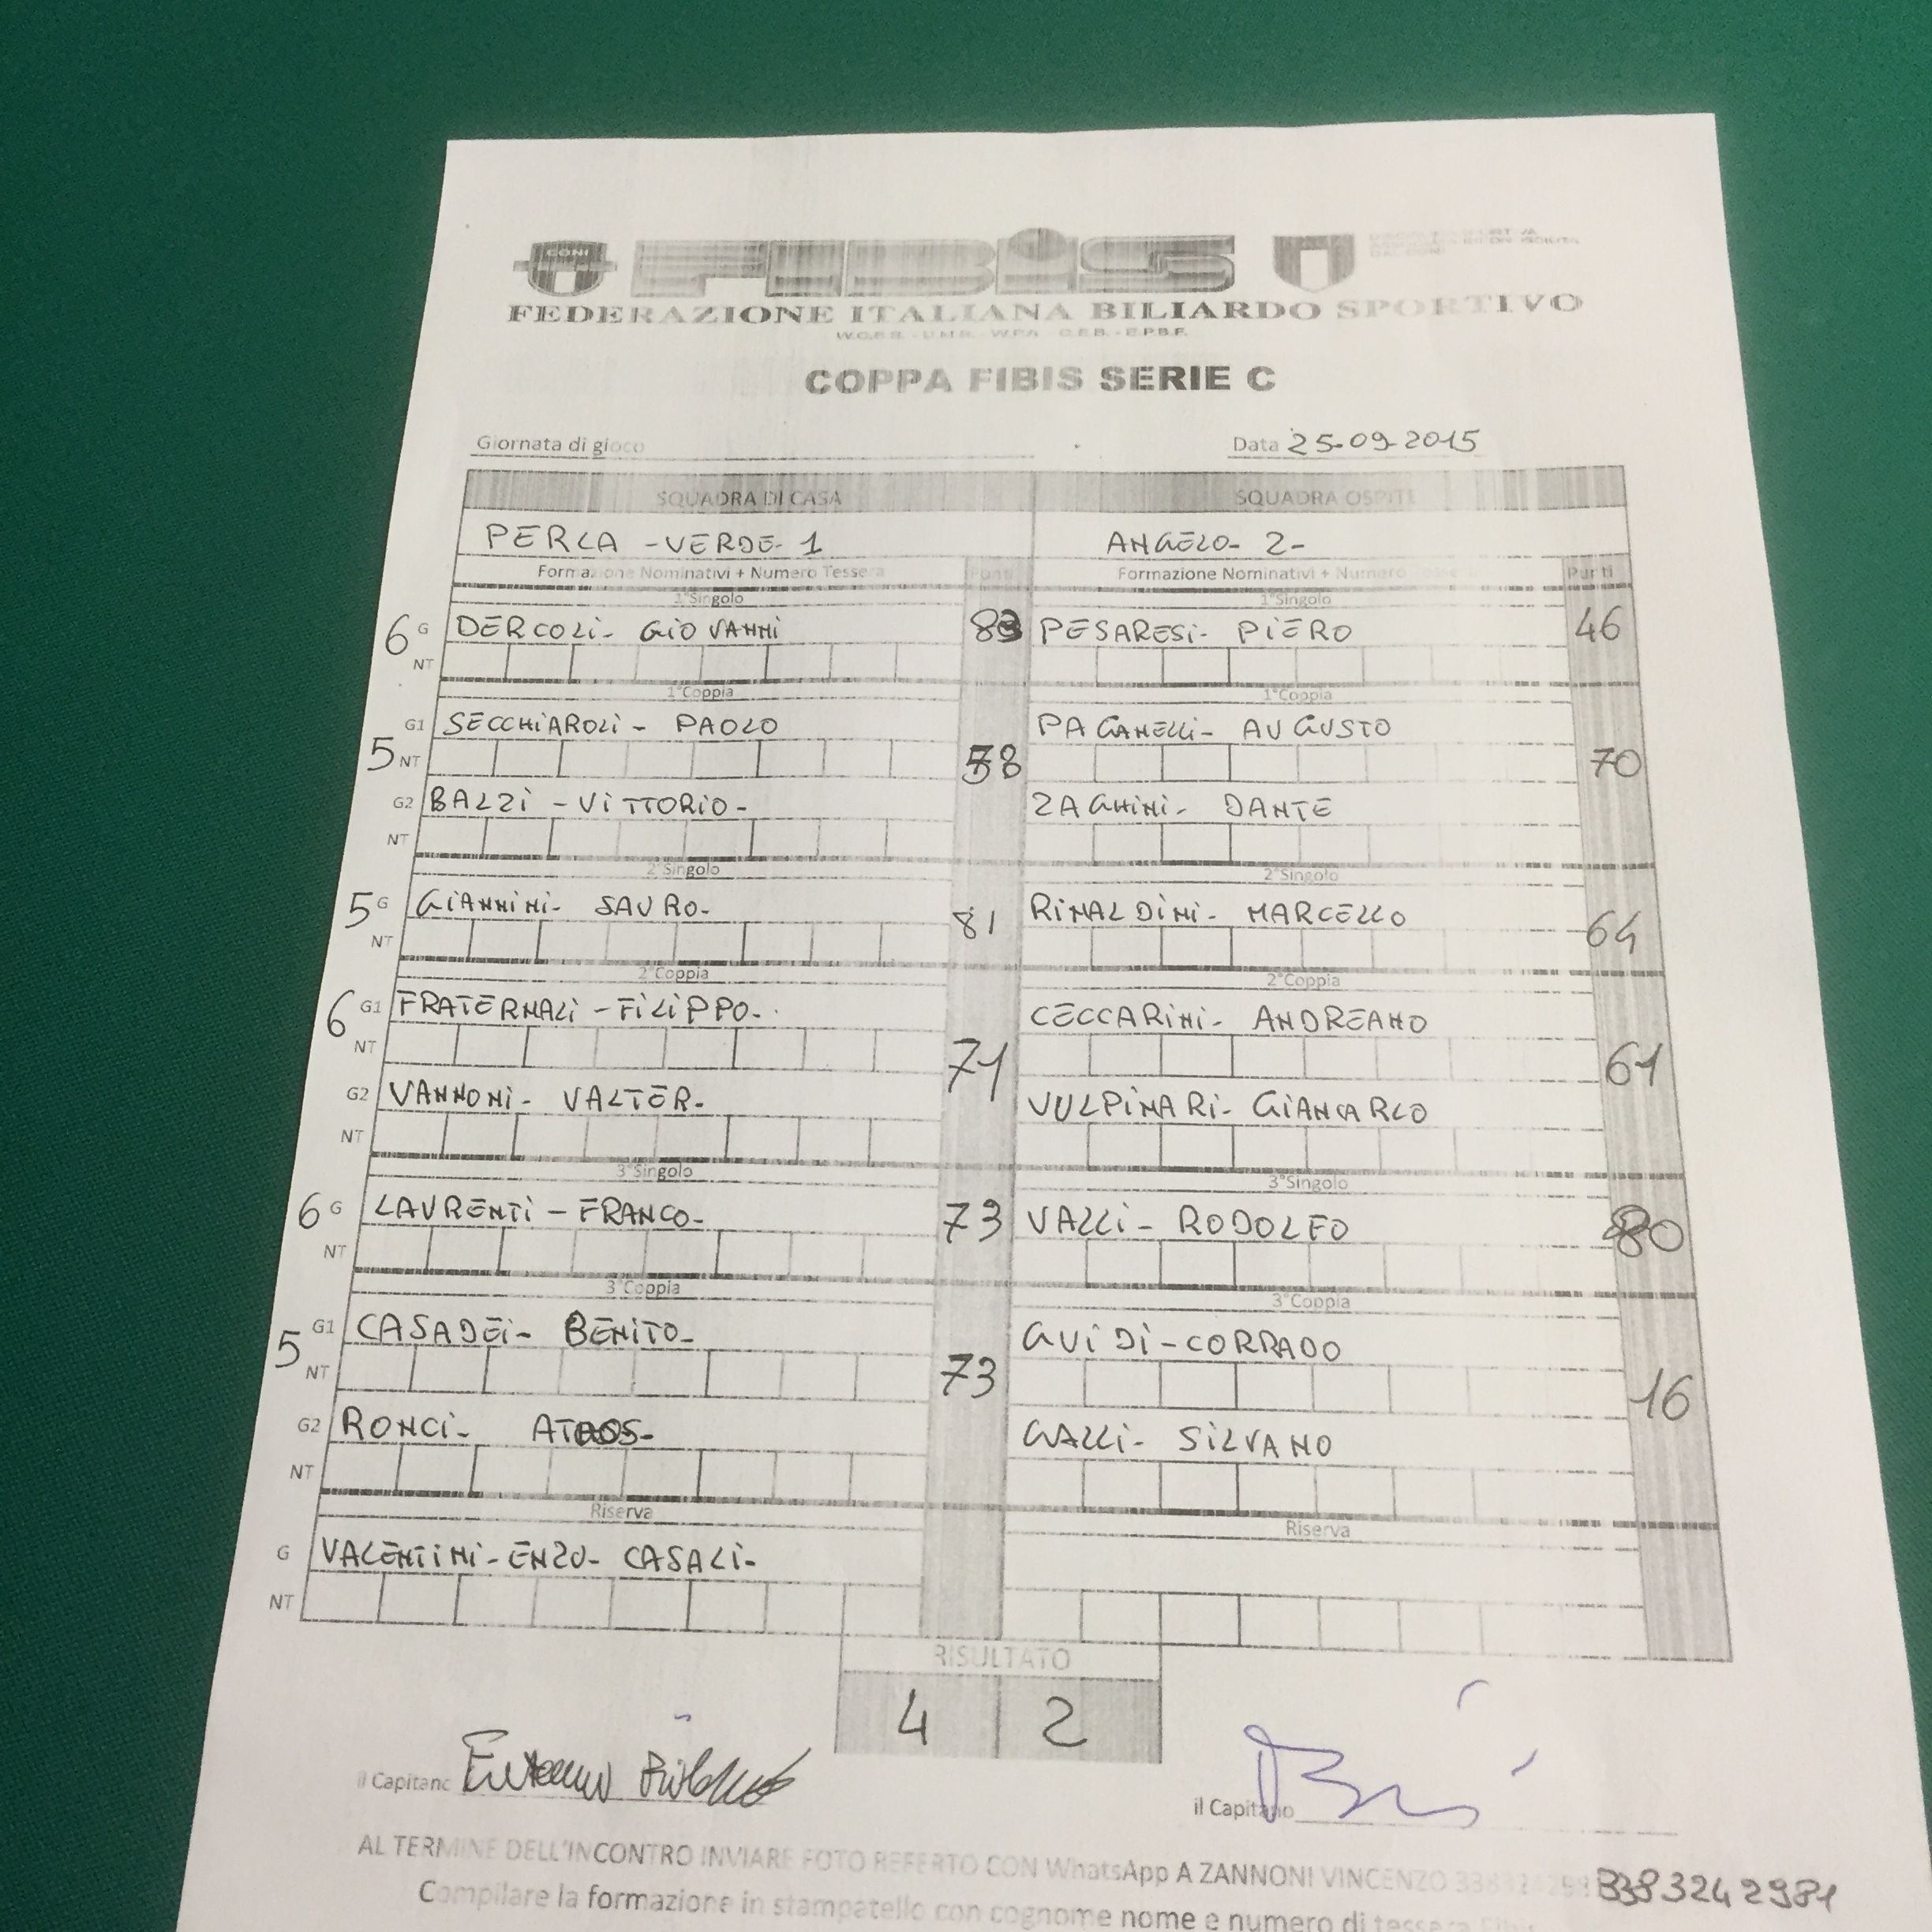 CONI
FIBiS
FEDERAZIONE ITALIANA BILIARDO SPORTIVO
COPPA FIBIS SERIE C
Giornata di gioco Data 25-09-2015
SQUADRA DI CASA SQUADRA OSPITE
PERLA -VERDE- 1 ANGELO- 2-
Formazione Nominativi + Numero Tessera Punti Formazione Nominativi + Numero Punti
1°Singolo 1°Singolo
6 G DERCOLI- GIOVANNI 83 PESARESI- PIERO 46
NT
1°Coppia 1°Coppia
G1 SECCHIAROLI- PAOLO PAGANELLI- AUGUSTO
5 NT 58 70
G2 BALZI -VITTORIO- ZAGHINI- DANTE
NT
2°Singolo 2°Singolo
5 G GIANNINI- SAURO- 81 RINALDINI- MARCELLO 64
NT
2°Coppia 2°Coppia
6 G1 FRATERNALI -FILIPPO- CECCARINI- ANDREANO
NT 71 61
G2 VANNONI- VALTER- VULPINARI- GIANCARLO
NT
3°Singolo 3°Singolo
6 G LAURENTI - FRANCO- 73 VALLI- RODOLFO 80
NT
3°Coppia 3°Coppia
G1 CASADEI- BENITO- GUIDI-CORRADO
5 NT 73 16
G2 RONCI- ATHOS- GALLI- SILVANO
NT
Riserva Riserva
G VALENTINI-ENZO- CASALI-
NT
RISULTATO
4 2
il Capitano il Capitano
AL TERMINE DELL'INCONTRO INVIARE FOTO REFERTO CON WhatsApp A ZANNONI VINCENZO 3383242981
Compilare la formazione in stampatello con cognome nome e numero di tessera Fibis